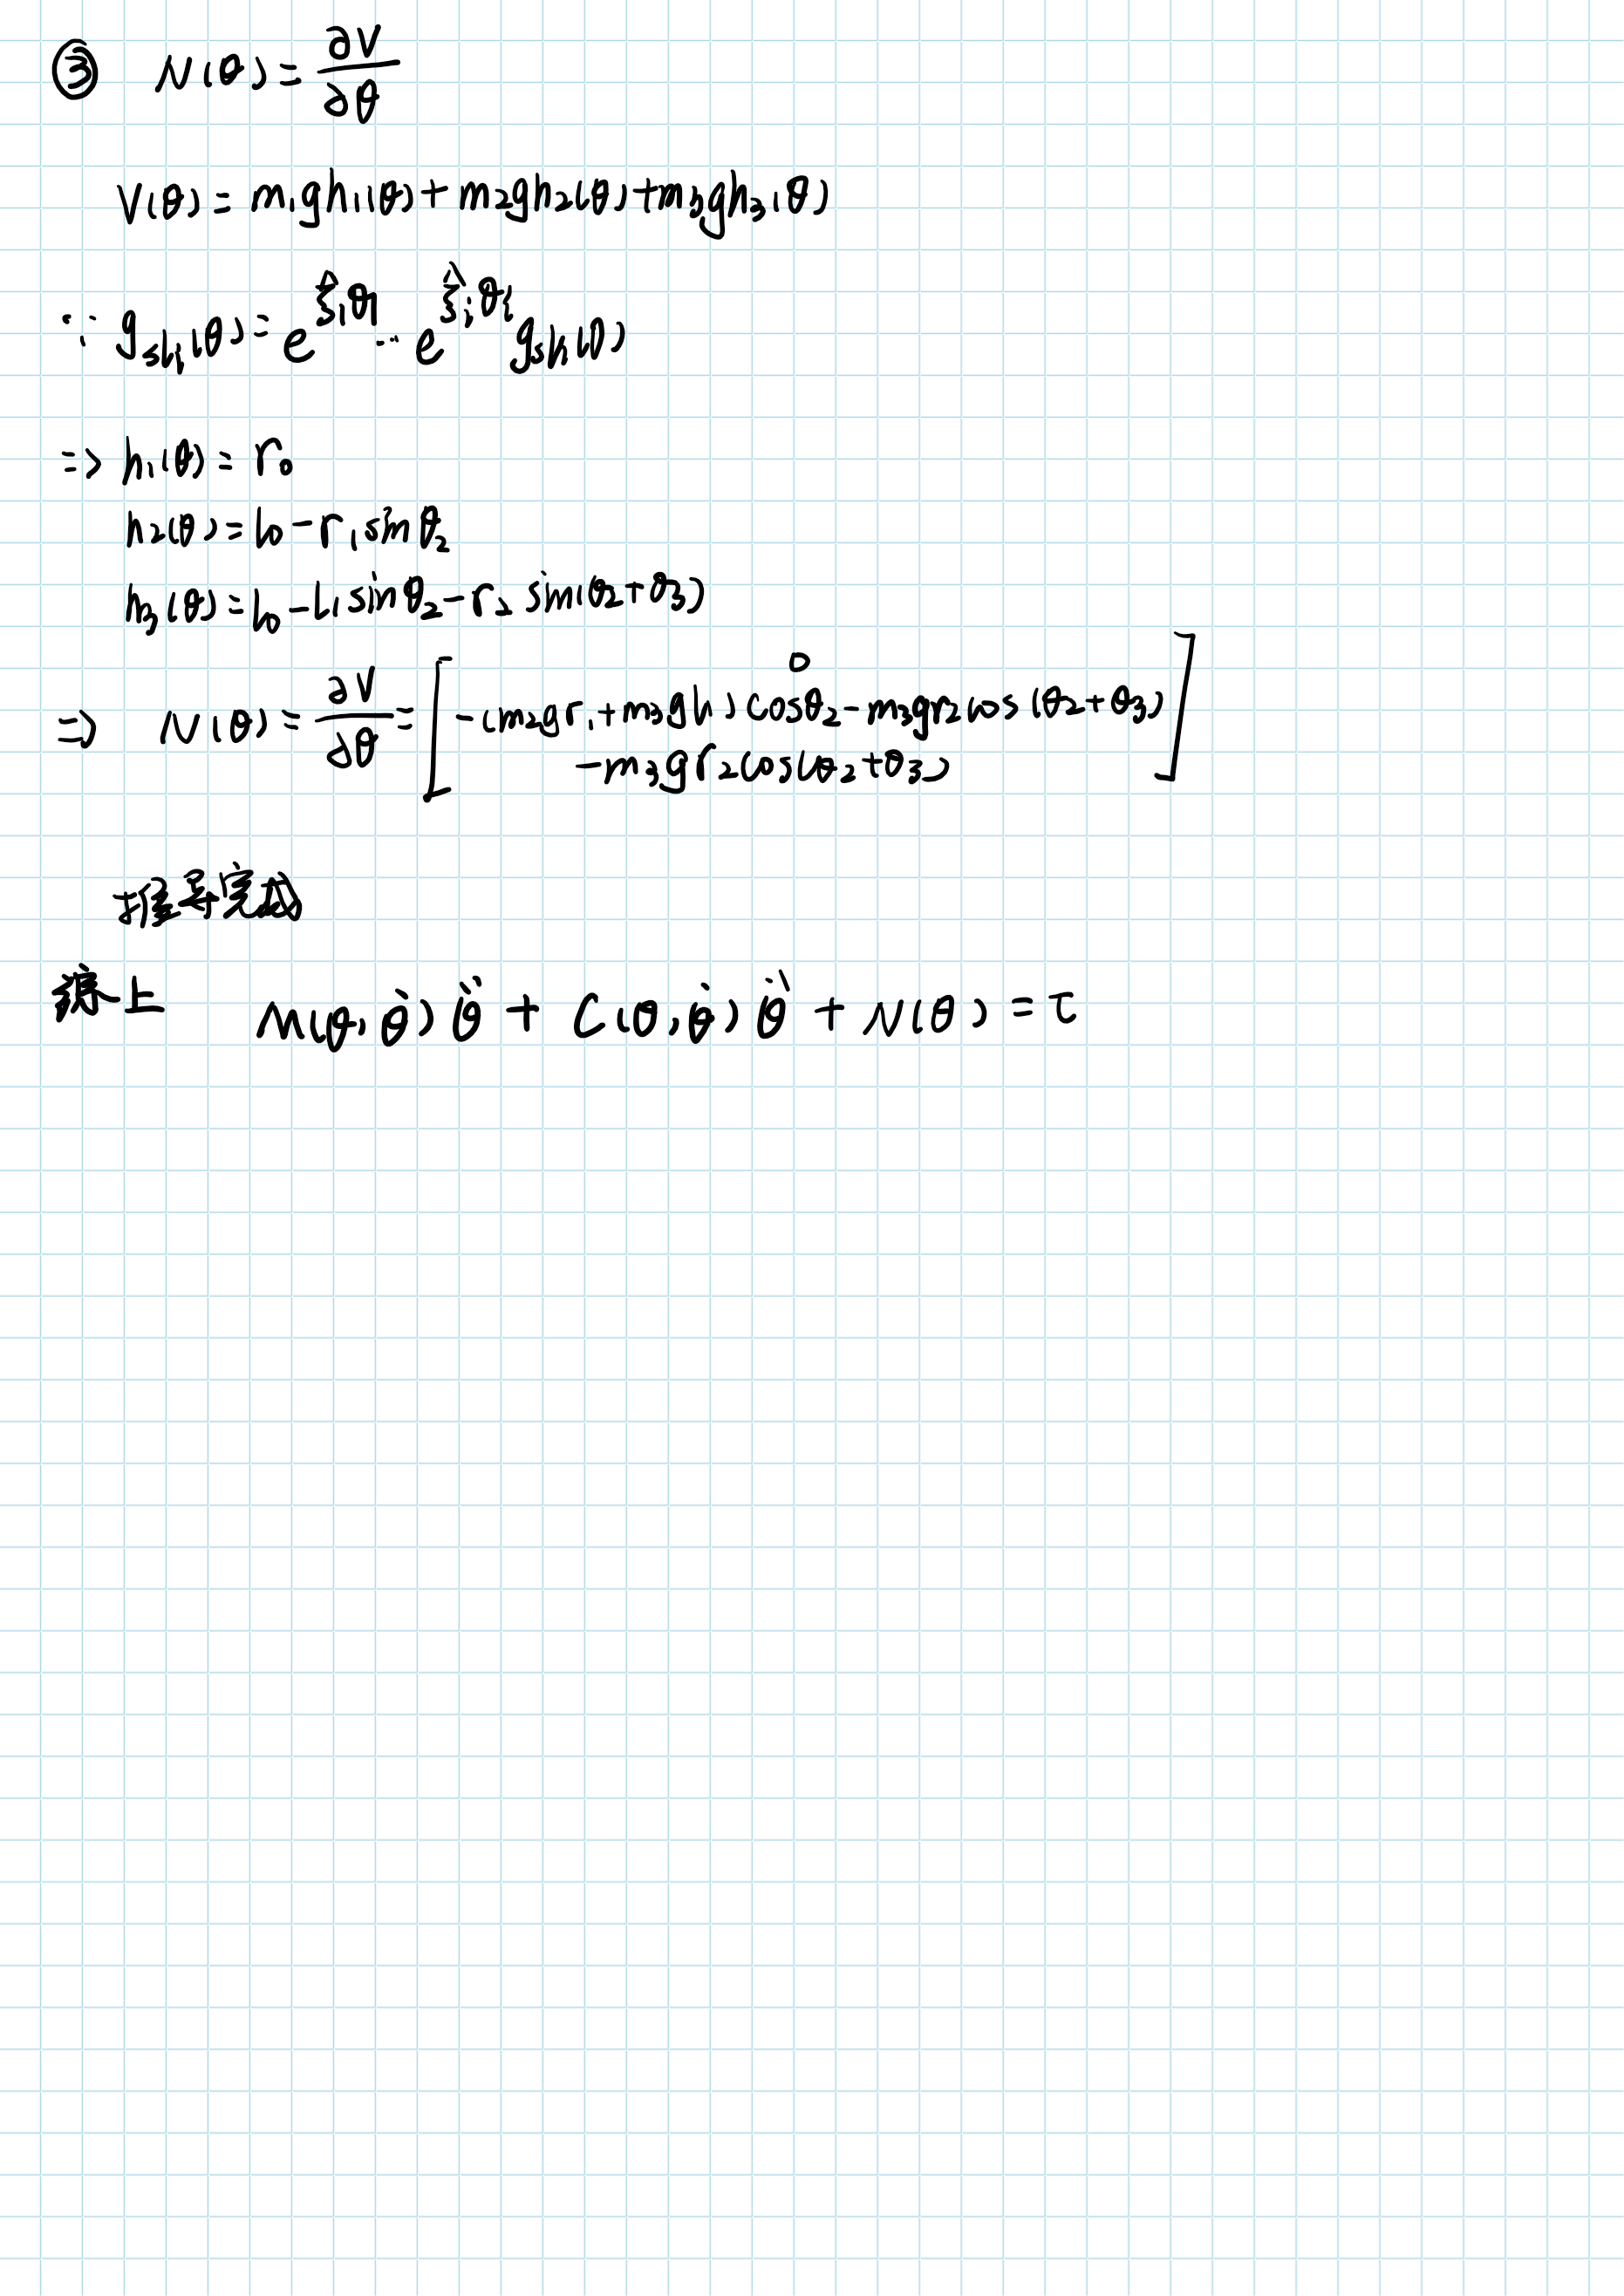 ③ N(θ) = ∂V/∂θ
V(θ) = m₁gh₁(θ) + m₂gh₂(θ) + m₃gh₃(θ)
∵ g_{sl_i}(θ) = e^{ξ̂₁θ₁} … e^{ξ̂_iθ_i} g_{sl_i}(0)
=> h₁(θ) = r₀
h₂(θ) = l₀ - r₁ sin θ₂
h₃(θ) = l₀ - l₁ sin θ₂ - r₂ sin(θ₂+θ₃)
=> N(θ) = ∂V/∂θ = [ 0
-(m₂gr₁ + m₃gl₁) cosθ₂ - m₃gr₂ cos(θ₂+θ₃)
-m₃gr₂cos(θ₂+θ₃) ]
推导完成
综上 M(θ, θ̇) θ̈ + C(θ, θ̇) θ̈ + N(θ) = τ